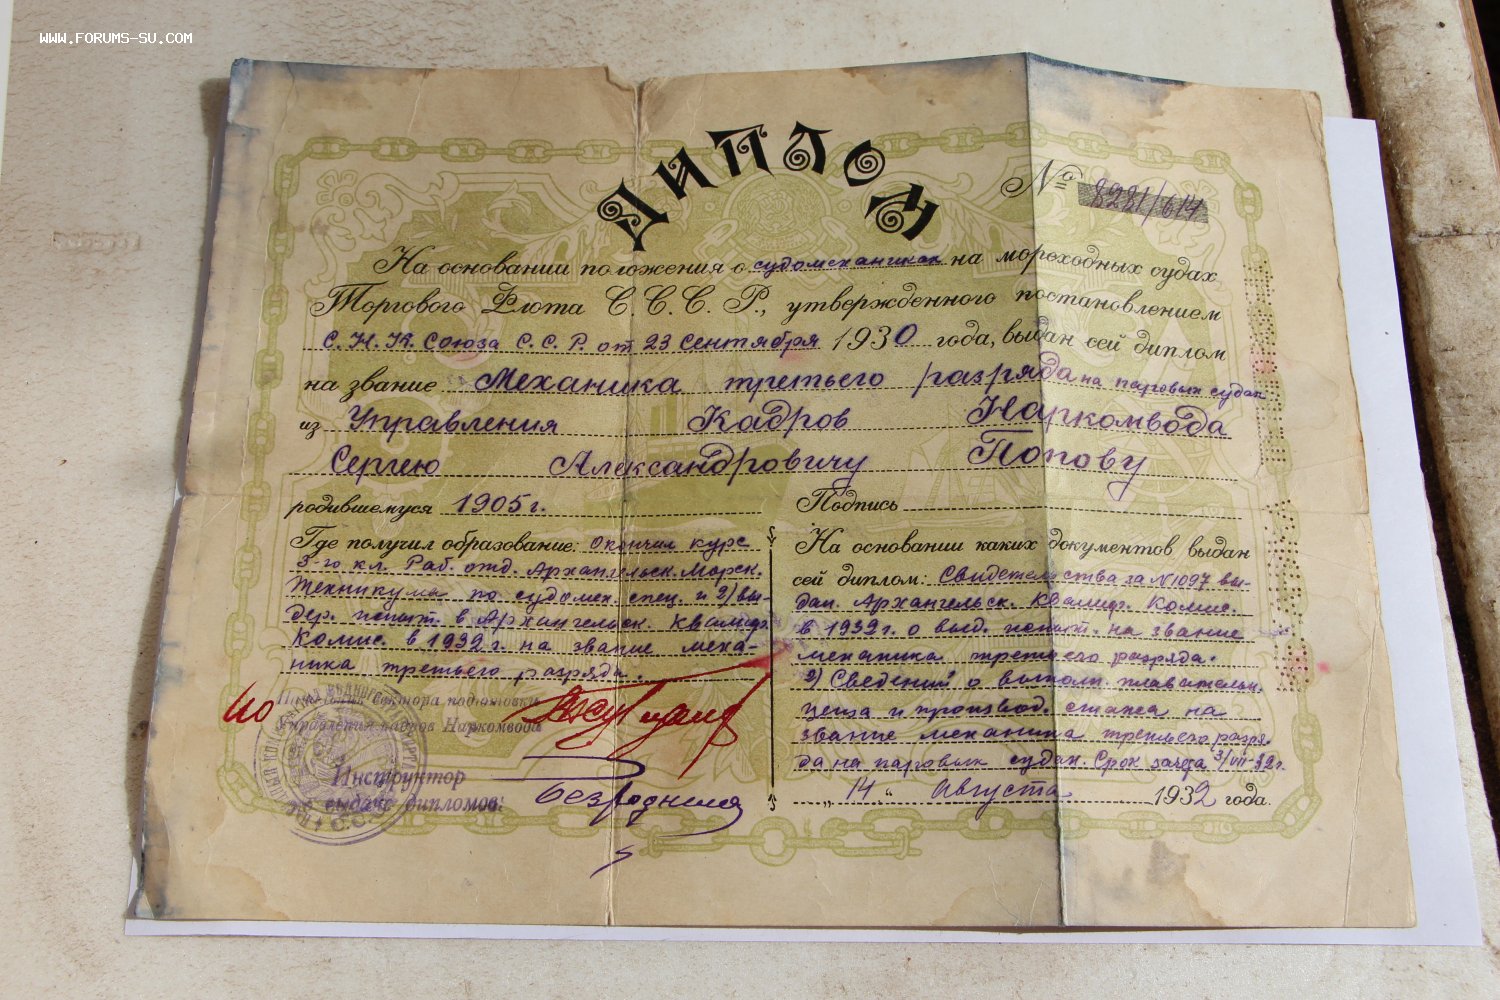 WWW.FORUMS-SU.COM
ДИПЛОМ
№ 8281/614
На основании положения о судомеханиках на мореходных судах
Торгового Флота С.С.С.Р., утвержденного постановлением
С.Н.К. Союза С.С.Р. от 23 Сентября 1930 года, выдан сей диплом
на звание Механика третьего разряда на паровых судах
из Управления Кадров Наркомвода
Сергею Александровичу Попову
родившемуся 1905 г.
Подпись
Где получил образование: Окончил курс
3-го кл. Раб. отд. Архангельск. Морск.
Техникума по судомех. спец. и 2) вы-
дер. испыт. в Архангельск. Квалиф.
Комис. в 1932 г. на звание меха-
ника третьего разряда.
На основании каких документов выдан
сей диплом: Свидетельства за №1097 вы-
дан. Архангельск. Квалиф. Комис.
в 1932 г. о выд. испыт. на звание
механика третьего разряда.
2) Сведений о выполн. плавательн.
ценза и производ. стажа на
звание механика третьего разря-
да на паровых судах. Срок зачда 3/VII-32 г.
„ 14 “ Августа 1932 года.
ио Начальник Сектора подготовки
Управления кадров Наркомвода
Инструктор
по выдаче дипломов: